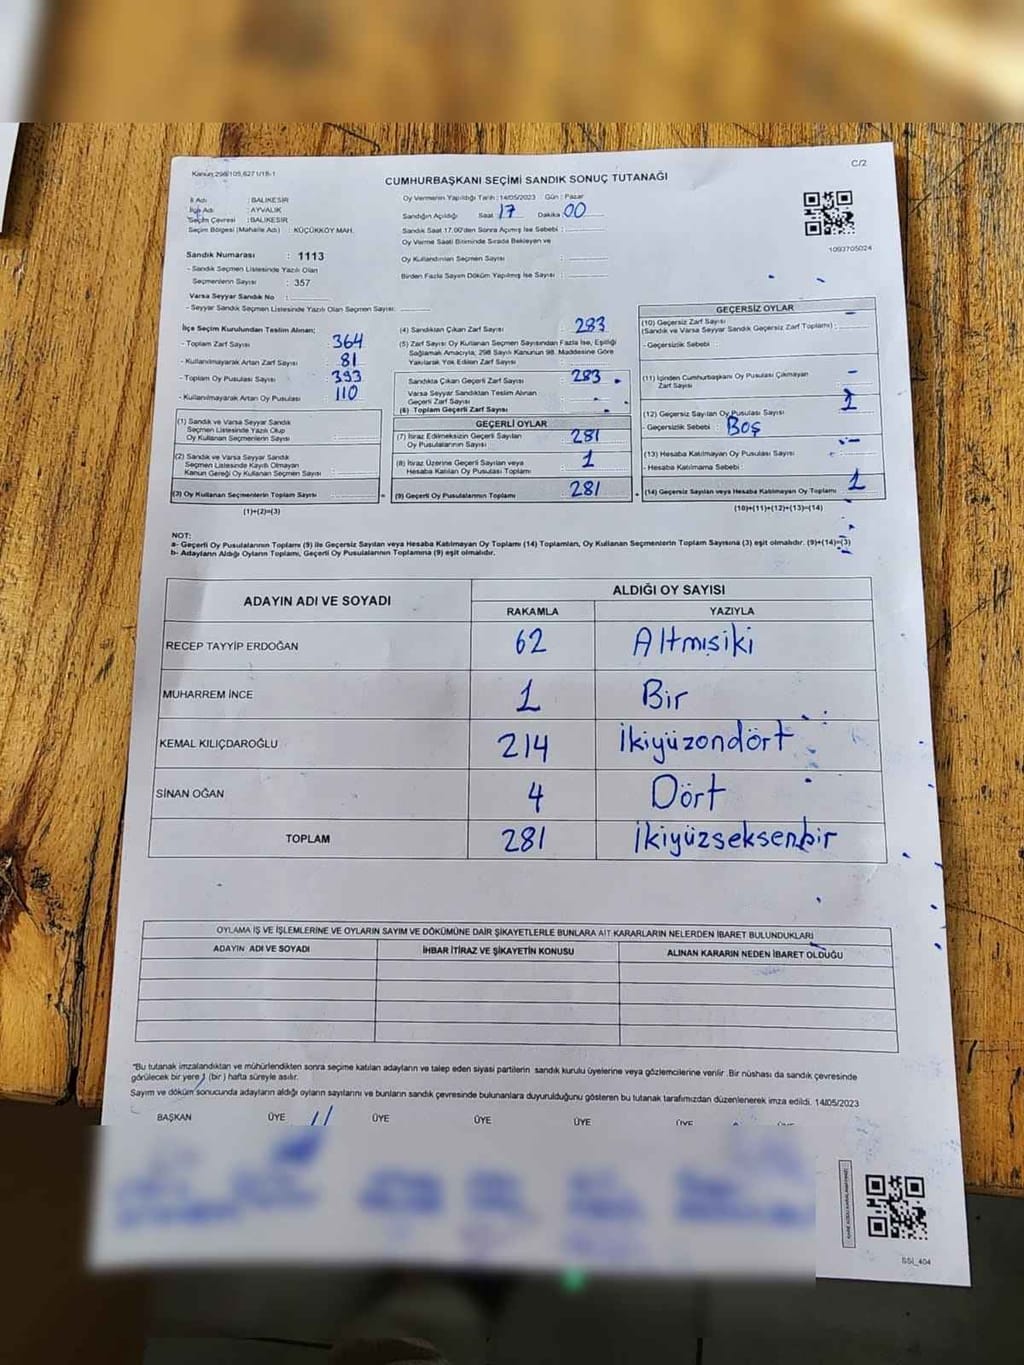 Kanun:298/105,6271/18-1
C/2
CUMHURBAŞKANI SEÇİMİ SANDIK SONUÇ TUTANAĞI
1093705024
İl Adı : BALIKESİR
İlçe Adı : AYVALIK
Seçim Çevresi : BALIKESİR
Seçim Bölgesi (Mahalle Adı) : KÜÇÜKKÖY MAH.
Sandık Numarası : 1113
- Sandık Seçmen Listesinde Yazılı Olan
Seçmenlerin Sayısı : 357
Varsa Seyyar Sandık No :
- Seyyar Sandık Seçmen Listesinde Yazılı Olan Seçmen Sayısı:
Oy Vermenin Yapıldığı Tarih : 14/05/2023 Gün : Pazar
Sandığın Açıldığı Saat 17 Dakika 00
Sandık Saat 17.00'den Sonra Açılmış İse Sebebi :
Oy Verme Saati Bitiminde Sırada Bekleyen ve
Oy Kullandırılan Seçmen Sayısı :
Birden Fazla Sayım Döküm Yapılmış İse Sayısı :
İlçe Seçim Kurulundan Teslim Alınan;
- Toplam Zarf Sayısı : 364
- Kullanılmayarak Artan Zarf Sayısı : 81
- Toplam Oy Pusulası Sayısı : 393
- Kullanılmayarak Artan Oy Pusulası : 110
(1) Sandık ve Varsa Seyyar Sandık
Seçmen Listesinde Yazılı Olup
Oy Kullanan Seçmenlerin Sayısı
(2) Sandık ve Varsa Seyyar Sandık
Seçmen Listesinde Kayıtlı Olmayan
Kanun Gereği Oy Kullanan Seçmen Sayısı
(3) Oy Kullanan Seçmenlerin Toplam Sayısı
(1)+(2)=(3)
(4) Sandıktan Çıkan Zarf Sayısı : 283
(5) Zarf Sayısı Oy Kullanan Seçmen Sayısından Fazla İse, Eşitliği
Sağlamak Amacıyla, 298 Sayılı Kanunun 98. Maddesine Göre
Yakılarak Yok Edilen Zarf Sayısı :
Sandıkta Çıkan Geçerli Zarf Sayısı : 283
Varsa Seyyar Sandıktan Teslim Alınan
Geçerli Zarf Sayısı :
(6) Toplam Geçerli Zarf Sayısı :
GEÇERLİ OYLAR
(7) İtiraz Edilmeksizin Geçerli Sayılan
Oy Pusulalarının Sayısı 281
(8) İtiraz Üzerine Geçerli Sayılan veya
Hesaba Katılan Oy Pusulası Toplamı 1
(9) Geçerli Oy Pusulalarının Toplamı 281
GEÇERSİZ OYLAR
(10) Geçersiz Zarf Sayısı
(Sandık ve Varsa Seyyar Sandık Geçersiz Zarf Toplamı) : -
- Geçersizlik Sebebi :
(11) İçinden Cumhurbaşkanı Oy Pusulası Çıkmayan
Zarf Sayısı -
(12) Geçersiz Sayılan Oy Pusulası Sayısı 1
- Geçersizlik Sebebi : Boş
(13) Hesaba Katılmayan Oy Pusulası Sayısı : -
- Hesaba Katılmama Sebebi :
(14) Geçersiz Sayılan veya Hesaba Katılmayan Oy Toplamı 1
(10)+(11)+(12)+(13)=(14)
NOT:
a- Geçerli Oy Pusulalarının Toplamı (9) ile Geçersiz Sayılan veya Hesaba Katılmayan Oy Toplamı (14) Toplamları, Oy Kullanan Seçmenlerin Toplam Sayısına (3) eşit olmalıdır. (9)+(14)=(3)
b- Adayların Aldığı Oyların Toplamı, Geçerli Oy Pusulalarının Toplamına (9) eşit olmalıdır.
ADAYIN ADI VE SOYADI ALDIĞI OY SAYISI
RAKAMLA YAZIYLA
RECEP TAYYİP ERDOĞAN 62 Altmışiki
MUHARREM İNCE 1 Bir
KEMAL KILIÇDAROĞLU 214 İkiyüzondört
SİNAN OĞAN 4 Dört
TOPLAM 281 İkiyüzseksenbir
OYLAMA İŞ VE İŞLEMLERİNE VE OYLARIN SAYIM VE DÖKÜMÜNE DAİR ŞİKAYETLERLE BUNLARA AİT KARARLARIN NELERDEN İBARET BULUNDUKLARI
ADAYIN ADI VE SOYADI İHBAR İTİRAZ VE ŞİKAYETİN KONUSU ALINAN KARARIN NEDEN İBARET OLDUĞU
"Bu tutanak imzalandıktan ve mühürlendikten sonra seçime katılan adayların ve talep eden siyasi partilerin sandık kurulu üyelerine veya gözlemcilerine verilir. Bir nüshası da sandık çevresinde
görülecek bir yere 1 (bir) hafta süreyle asılır.
Sayım ve döküm sonucunda adayların aldığı oyların sayılarını ve bunların sandık çevresinde bulunanlara duyurulduğunu gösteren bu tutanak tarafımızdan düzenlenerek imza edildi. 14/05/2023
BAŞKAN ÜYE ÜYE ÜYE ÜYE ÜYE ÜYE
SSİ_404